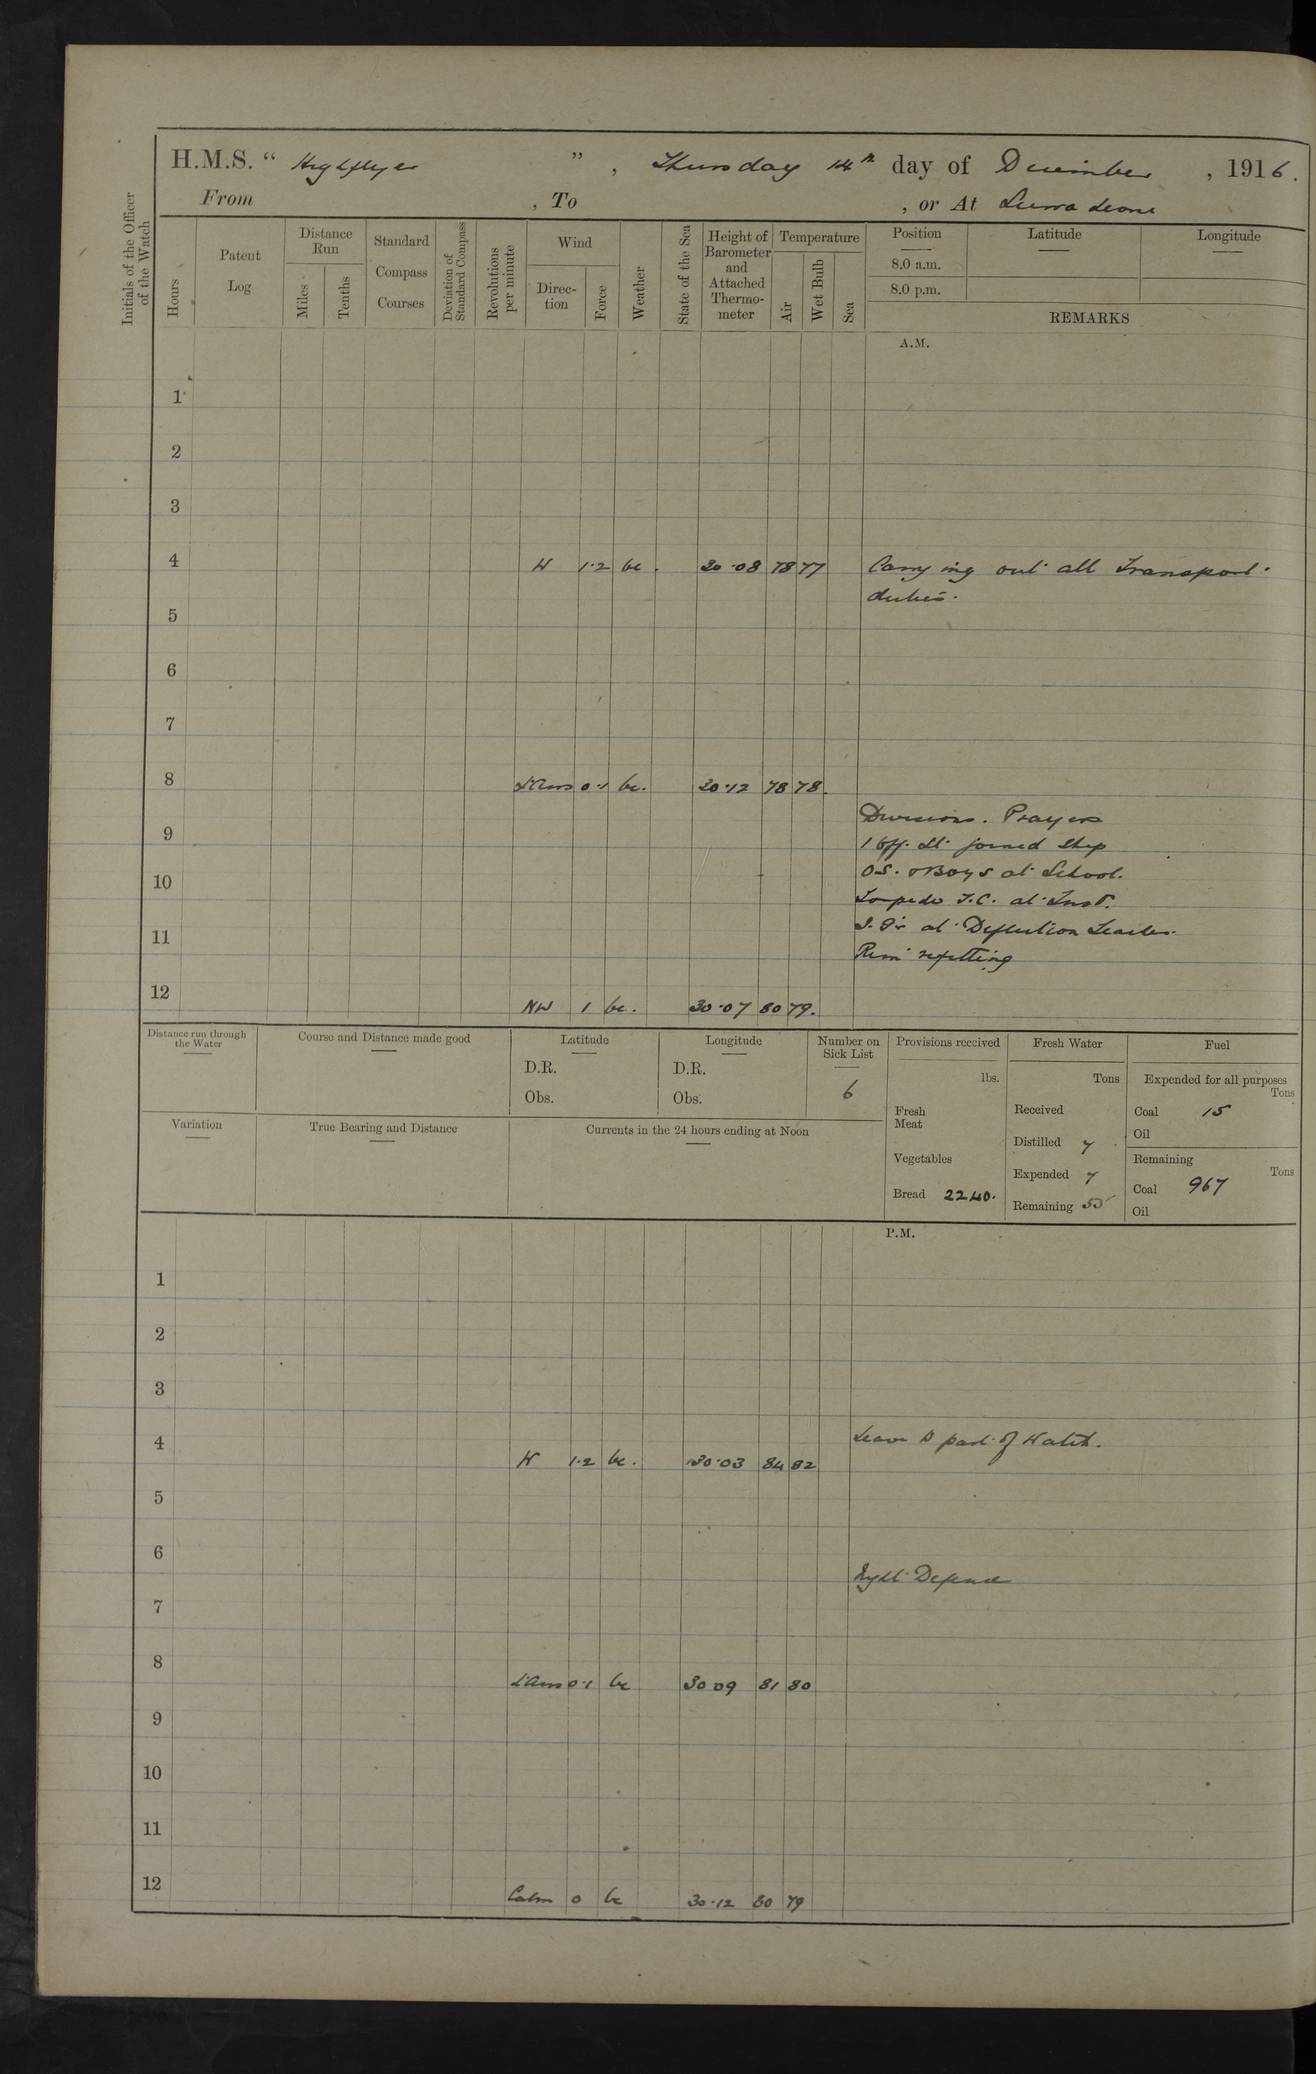 H.M.S. " Highflyer ", Thursday 14th day of December, 1916.
From , To , or At Sierra Leone
Initials of the Officer of the Watch
Hours
Patent Log
Distance Run
Miles
Tenths
Standard Compass Courses
Deviation of Standard Compass
Revolutions per minute
Wind
Direction
Force
Weather
State of the Sea
Height of Barometer and Attached Thermometer
Temperature
Air
Wet Bulb
Sea
Position
8.0 a.m.
8.0 p.m.
Latitude
Longitude
REMARKS
A.M.
1
2
3
4 W 1.2 bc. 30.08 78 77 Carrying out all Transport
duties.
5
6
7
8 L'Airs 0.1 bc. 30.12 78 78.
Divisions. Prayers
9
1 Off. St. joined ship
OS. & Boys at School.
10
Torpedo T.C. at Inst.
11
at Deflection Teacher.
Rem refitting
12 NW 1 bc. 30.07 80 79.
Distance run through the Water
Course and Distance made good
Latitude
D.R.
Obs.
Longitude
D.R.
Obs.
Number on Sick List
6
Provisions received
lbs.
Fresh Meat
Vegetables
Bread 2240.
Fresh Water
Tons
Received
Distilled 7
Expended 7
Remaining 55
Fuel
Expended for all purposes
Tons
Coal 15
Oil
Remaining
Tons
Coal 967
Oil
Variation
True Bearing and Distance
Currents in the 24 hours ending at Noon
P.M.
1
2
3
Leave to part of Watch.
4 W 1.2 bc. 30.03 84 82
5
6
Night Defence
7
8 L'Airs 0.1 bc 30 09 81 80
9
10
11
12 Calm 0 bc 30.12 80 79